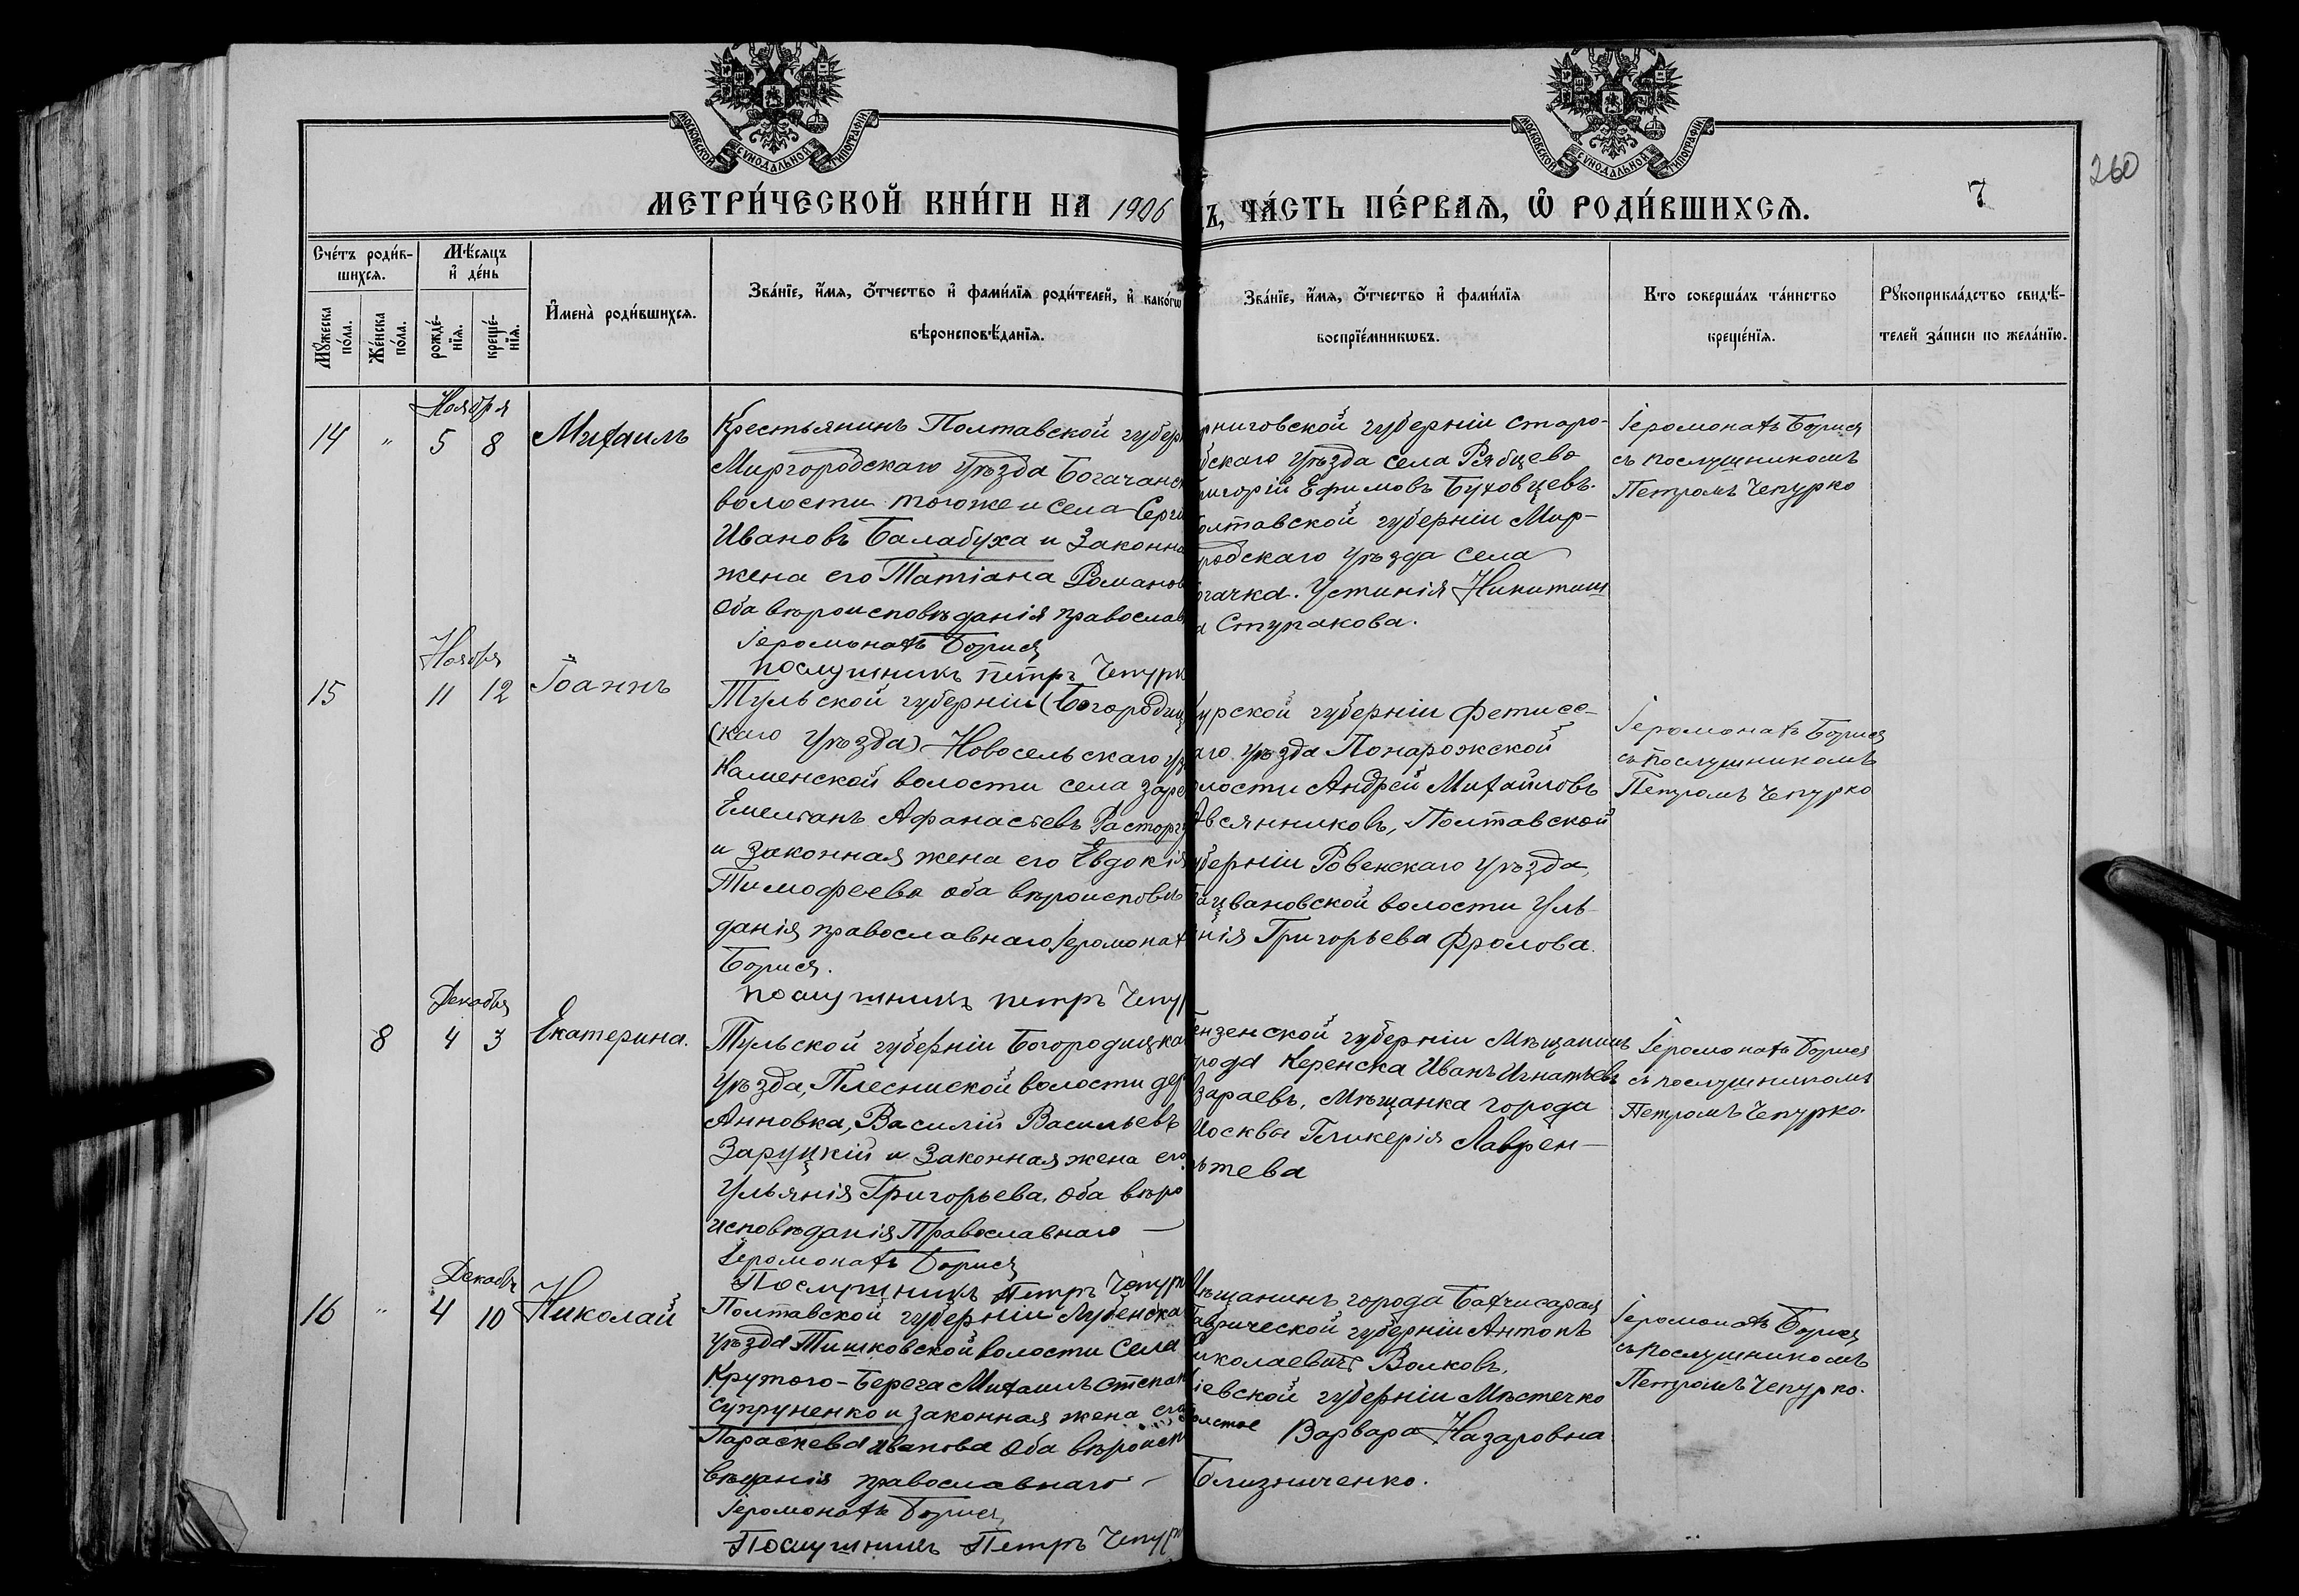 МОСКОВСКОЙ СѴНОДАЛЬНОЙ ТИПОГРАФІИ
МОСКОВСКОЙ СѴНОДАЛЬНОЙ ТИПОГРАФІИ
260
МЕТРИ́ЧЕСКОЙ КНИ́ГИ НА 1906
Ъ, ЧА́СТЬ ПЕ́РВАѦ, Ѡ҆ РОДИ́ВШИХСѦ.
7
Сче́тъ роди́в-
шихсѧ.
Мꙋ́жеска по́ла.
Же́нска по́ла.
Мѣ́сяцъ
и҆ де́нь
рожде́-
нїѧ.
креще́-
нїѧ.
И҆мена̀ роди́вшихсѧ.
Зва́нїе, и҆́мѧ, ѻ҆́тчество и҆ фами́лїѧ роди́телей, и҆ како́гѡ
вѣроисповѣ́данїѧ.
Зва́нїе, и҆́мѧ, ѻ҆́тчество и҆ фами́лїѧ
воспрїе́мникѡвъ.
Кто соверша́лъ та́инство
креще́нїѧ.
Рꙋкоприкла́дство свидѣ́-
телей за́писи по жела́нїю.
Ноября
14 " 5 8 Михаилъ
Крестьянинъ Полтавской губер
Миргородскаго уѣзда Богачанс
волости тогоже и села Серги
Ивановъ Балабуха и Законна
жена его Татіана Романов
Оба вѣроисповѣданія православ
Іеромонахъ Борисъ
послушникъ Петръ Чепурк
рниговской губерніи старо-
бскаго уѣзда села Рябцево
ригорій Ефимовъ Буховцевъ.
олтавской губерніи Мир-
родскаго уѣзда села
огачка. Устинія Никитиш
а Ступакова.
Іеромонахъ Борисъ
съ послушникомъ
Петромъ Чепурко
Ноября
15 11 12 Іоаннъ
Тульской губерніи (Богородиц
(каго уѣзда) Новосельскаго уѣ
Каменской волости села заре
Емеліанъ Афанасіевъ Расторгу
и Законная жена его Евдокія
Тимофеева оба вѣроисповѣ
данія православнаго Іеромонах
Борисъ.
послушникъ петръ Чепур
урской губерніи Фетисс-
аго уѣзда Понарожской
олости Андрей Михайловъ
Авсянниковъ, Полтавской
уберніи Ровенскаго уѣзда,
вановской волости Уль-
нія Григорьева Фролова.
Іеромонахъ Борисъ
съ послушникомъ
Петромъ Чепурко
Декабря
8 4 3 Екатерина.
Тульской губерніи Богородицка
уѣзда, волости дер
Анновка, Василій Васильевъ
Заруцкій и Законная жена его
Ульянія Григорьева. Оба вѣро
исповѣданія Православнаго —
Іеромонахъ Борисъ
Послушникъ Петръ Чепурк
ензенской губерніи Мѣщанинъ
рода Керенска Иванъ Игнатьевъ
зараевъ, Мѣщанка города
Москвы Гликерія Лаврен-
ьтева
Іеромонахъ Борисъ
съ послушникомъ
Петромъ Чепурко.
Декабр
16 " 4 10 Николай
Полтавской губерніи Лубенска
уѣзда Тишковской волости Села
Крутого-Берега Михаилъ Степан
Супруненко и законная жена его
Параскева Иванова Оба вѣроисп
вѣданія православнаго —
Іеромонахъ Борисъ,
Послушникъ Петръ Чепурк
Мѣщанинъ города Бахчисарая
Таврической губерніи Антонъ
иколаевичъ Волковъ.
іевской губерніи Мѣстечко
Варвара Назаровна
Близниченко.
Іеромонахъ Борисъ
съ послушникомъ
Петромъ Чепурко.